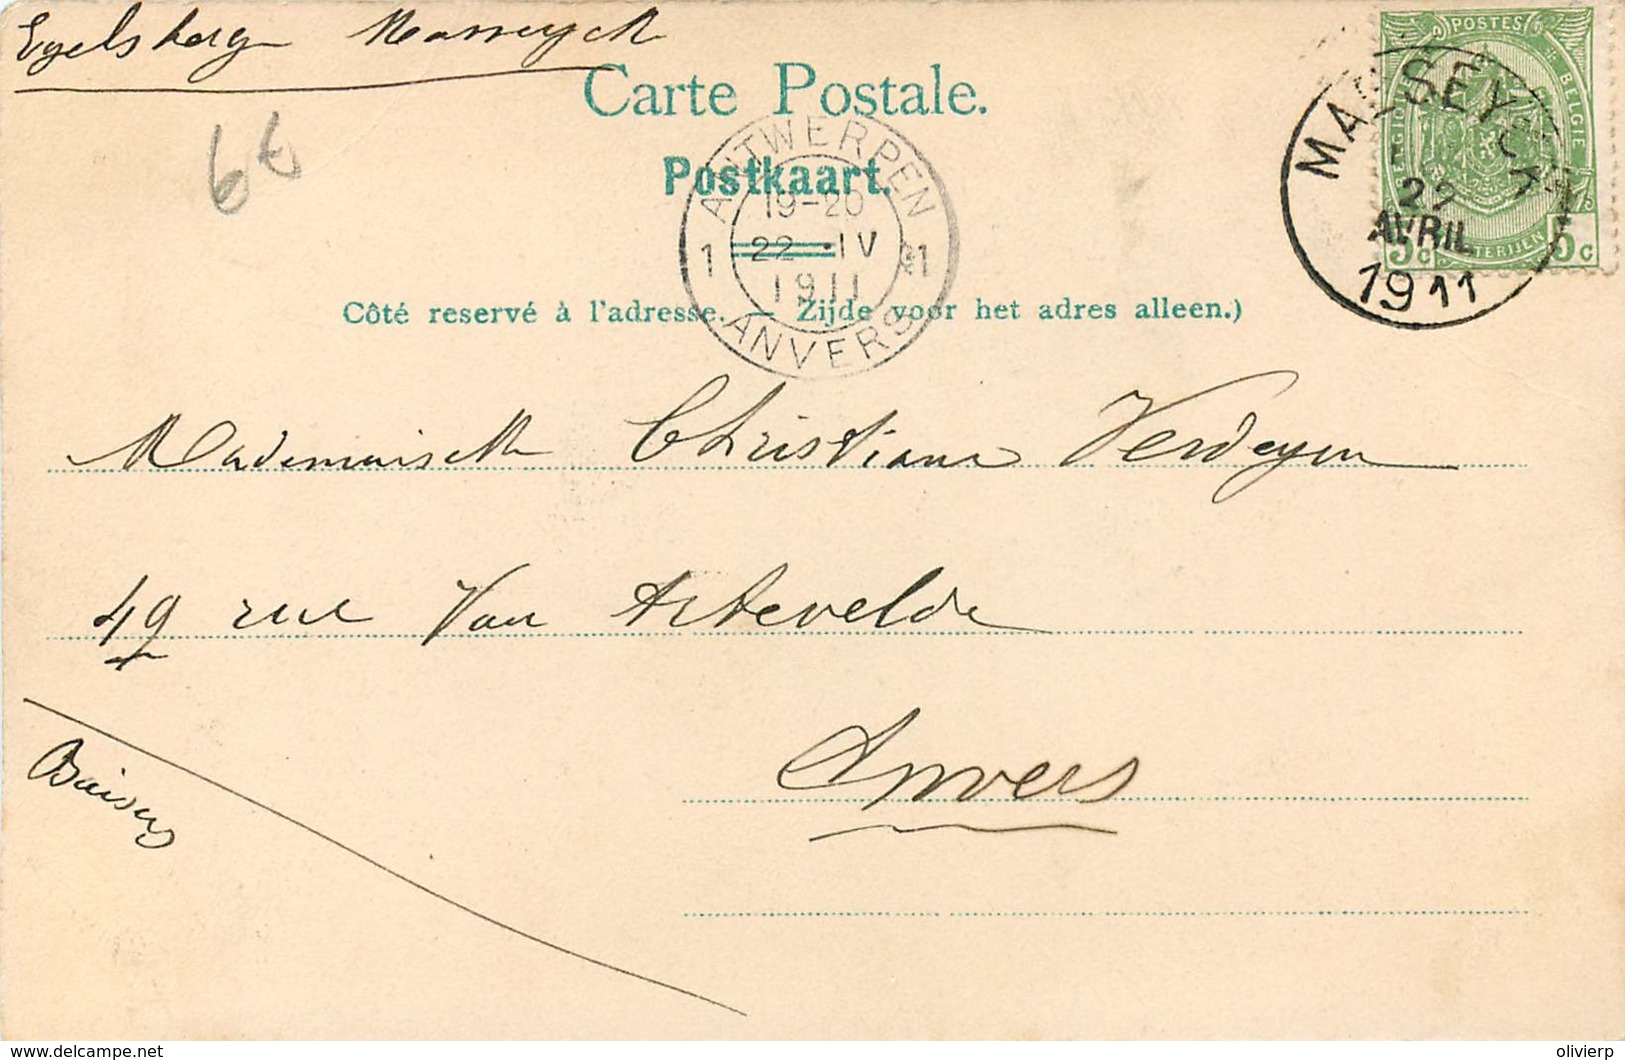 Egelsberg Maeseyck
Carte Postale.
Postkaart.
6t
POSTES
BELGIE
5c 5c
MAESEYCK
22
AVRIL
1911
ANTWERPEN
19-20
1 22 IV 1
1911
ANVERS
Côté reservé à l'adresse. — Zijde voor het adres alleen.)
Mademoiselle Christiane Verdeyen
49 rue Van Artevelde
Anvers
Baisers
www.delcampe.net
olivierp